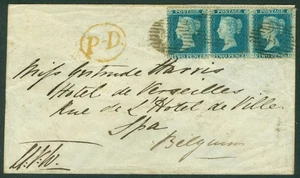 P.D.
POSTAGE POSTAGE POSTAGE
TWO PENCE TWO PENCE TWO PENCE
Miss Gertrude Harris
Hotel de Versailles
Rue de L'Hotel de Ville
Spa
Belgium